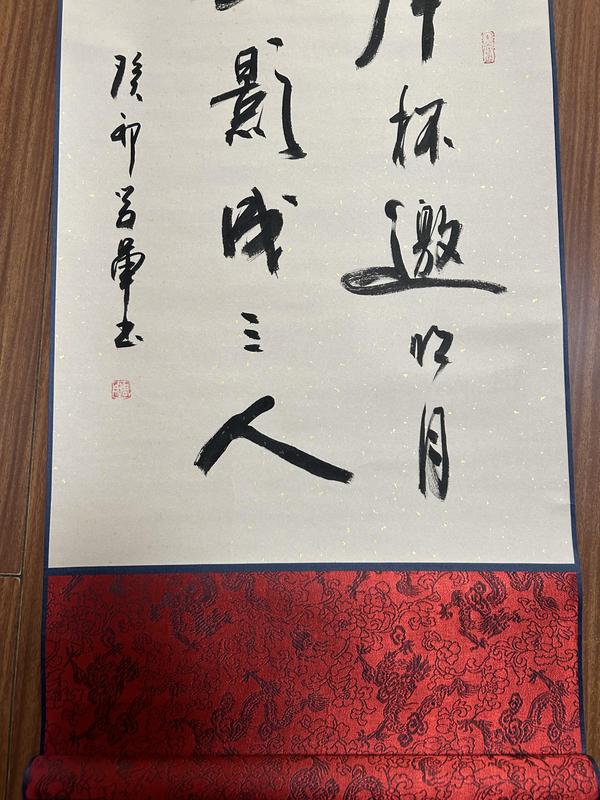 举杯邀明月
影成三人
癸卯
书